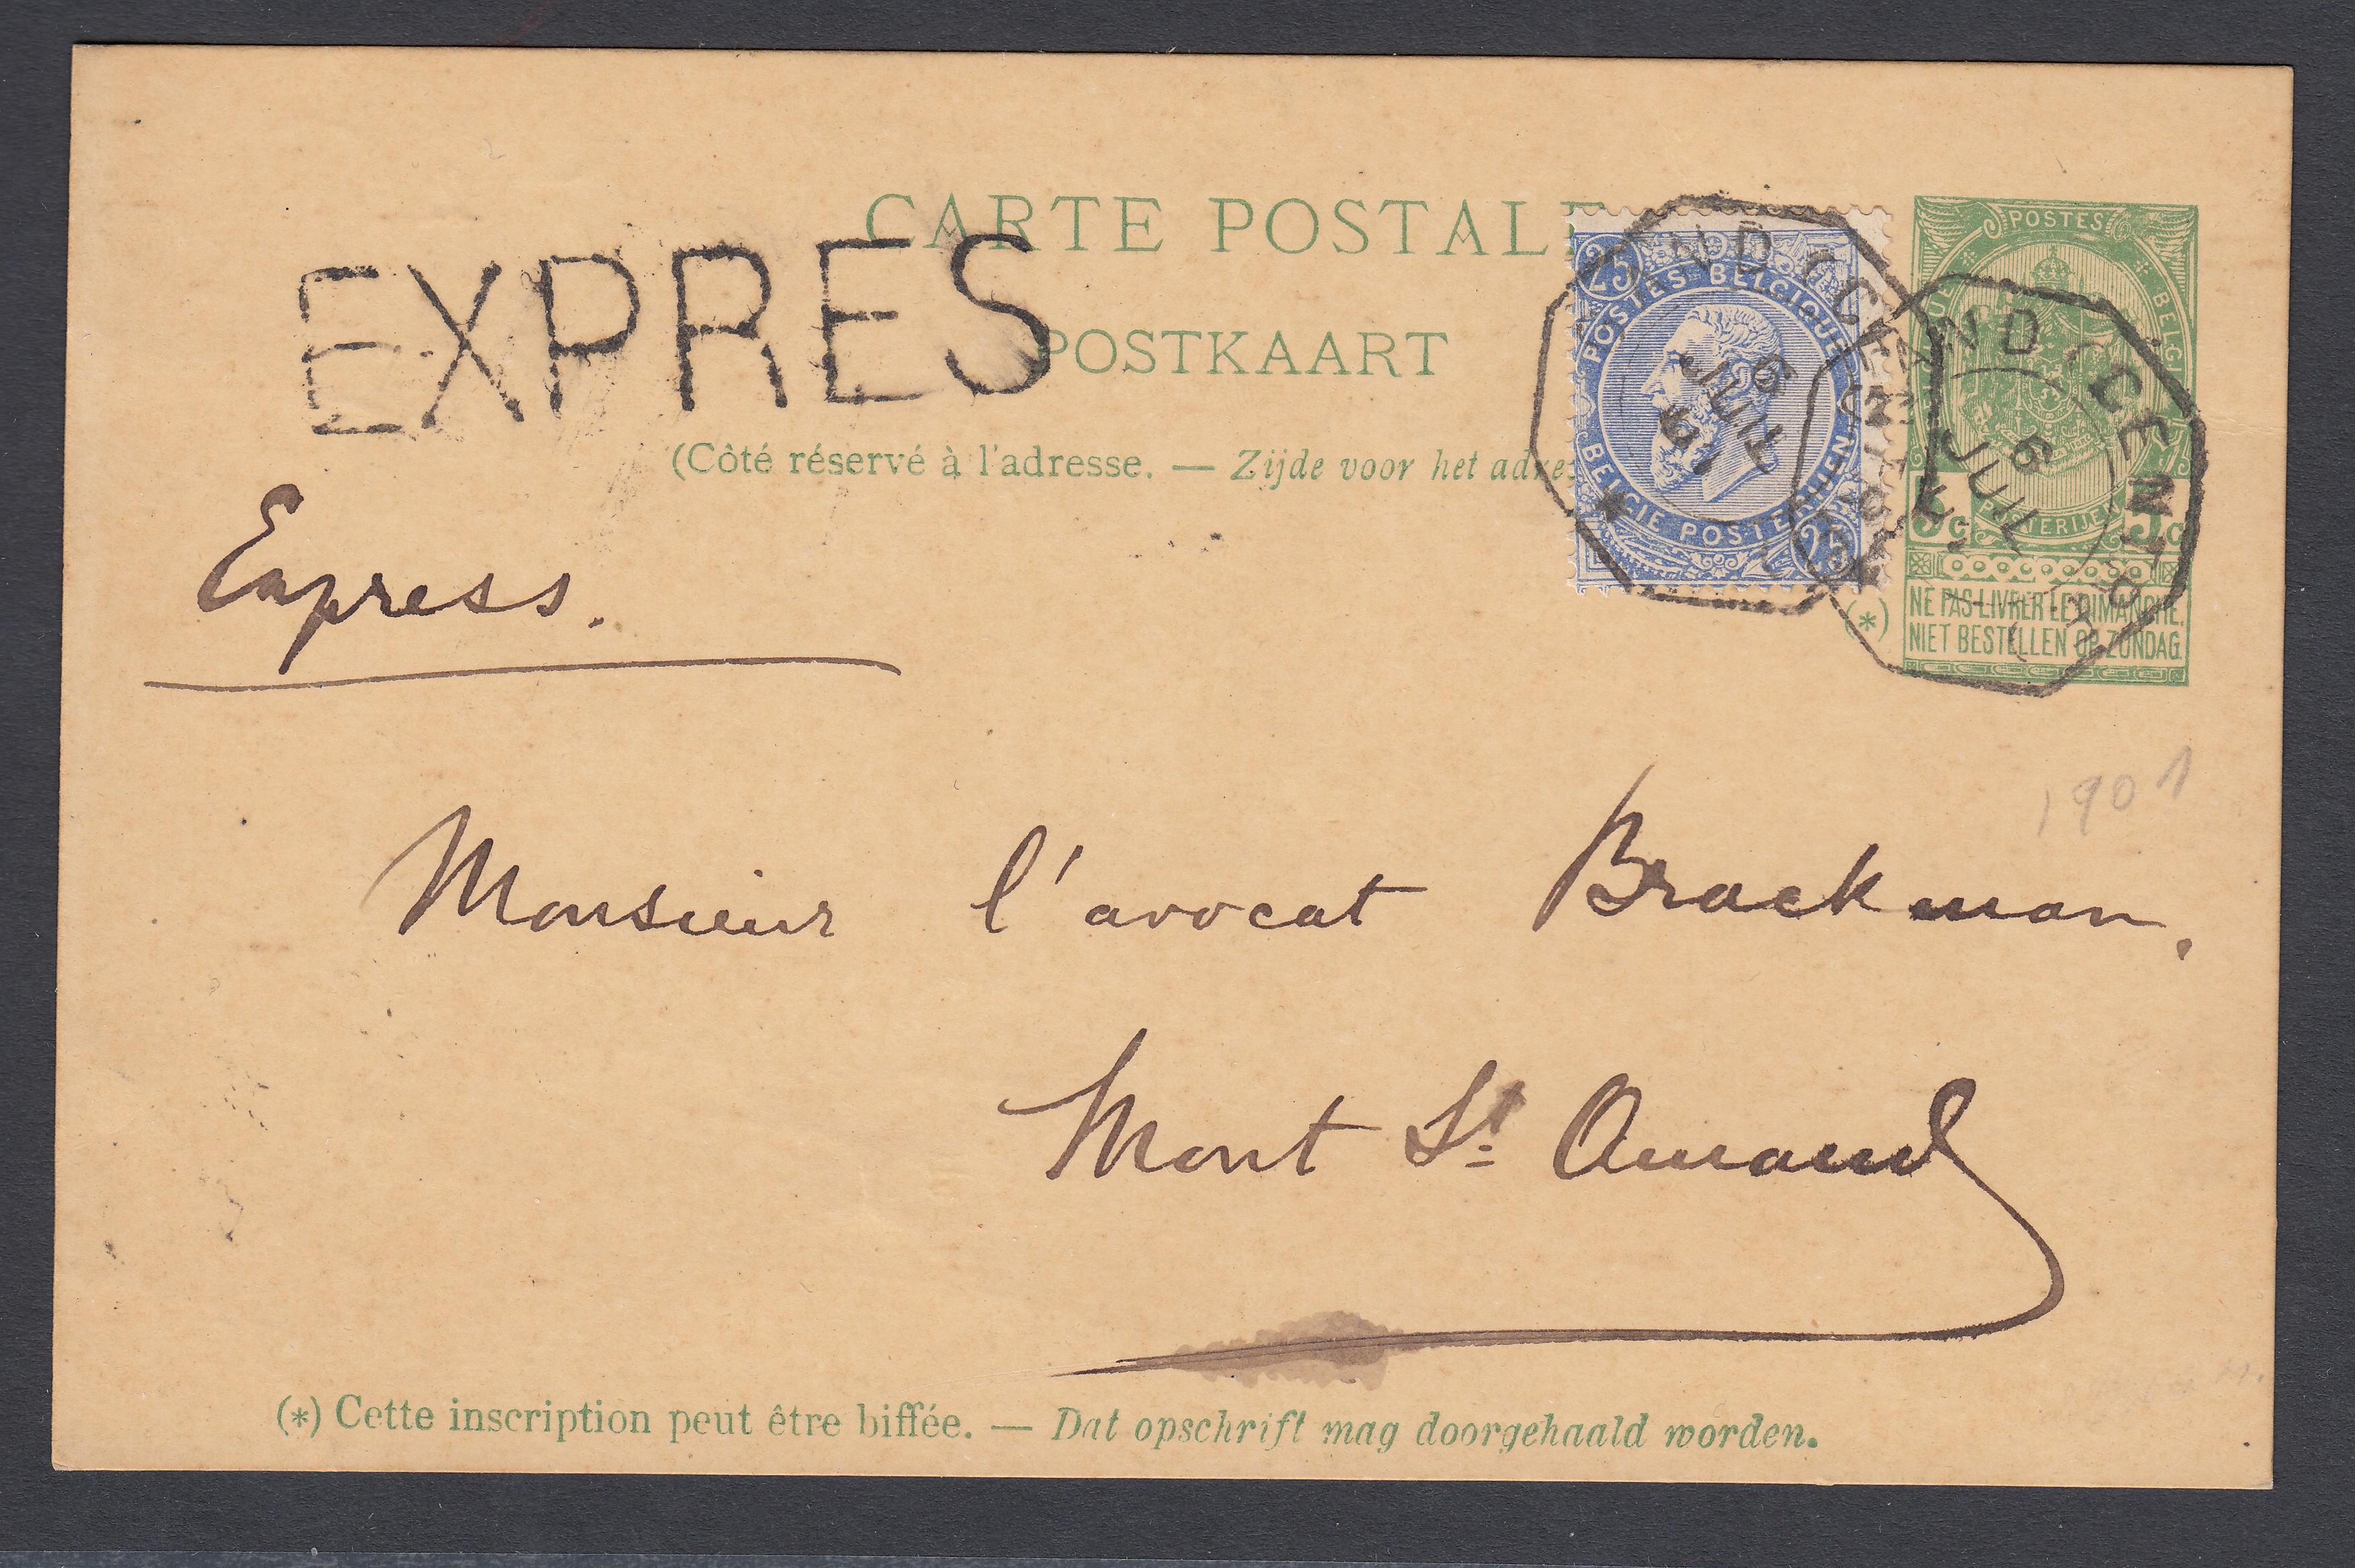 CARTE POSTALE
EXPRES
POSTKAART
(Côté réservé à l'adresse. — Zijde voor het adres
25
POSTES BELGIQUE
BELGIE POSTERIJEN
25
POSTES
BELGI
POSTERIJEN
5c 5c
(*) NE PAS LIVRER LE DIMANCHE.
NIET BESTELLEN OP ZONDAG.
6
JUIL
6
JUIL
Express.
1901
Monsieur l'avocat Brackman.
Mont St Amand
(*) Cette inscription peut être biffée. — Dat opschrift mag doorgehaald worden.